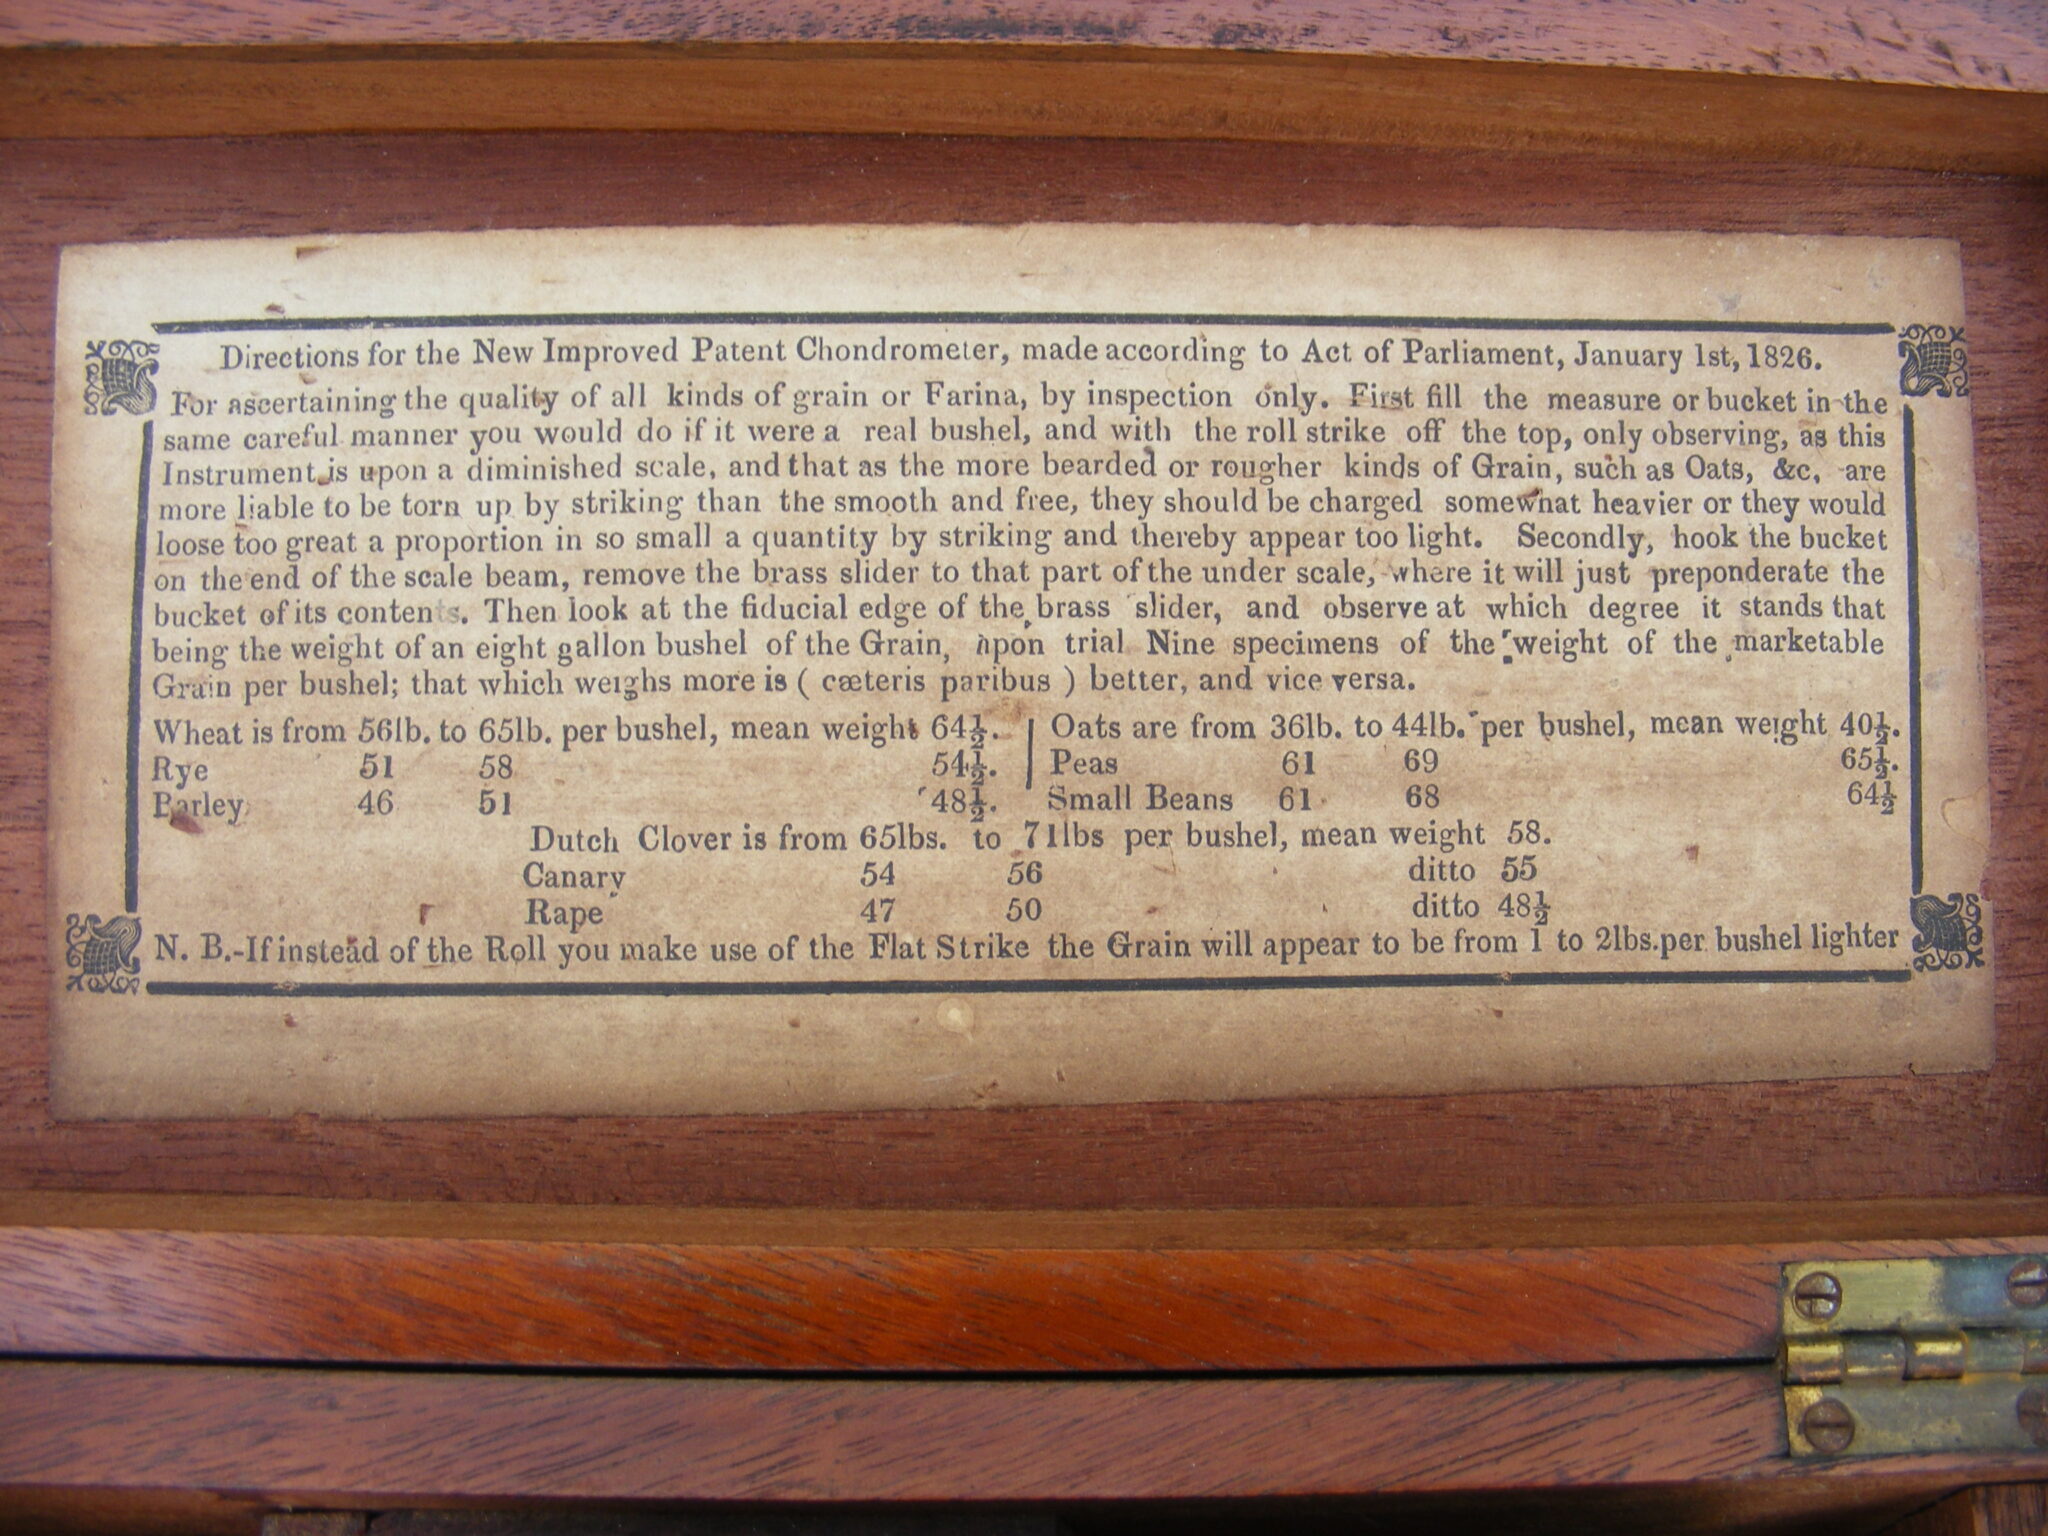 Directions for the New Improved Patent Chondrometer, made according to Act of Parliament, January 1st, 1826.
For ascertaining the quality of all kinds of grain or Farina, by inspection only. First fill the measure or bucket in the
same careful manner you would do if it were a real bushel, and with the roll strike off the top, only observing, as this
Instrument is upon a diminished scale, and that as the more bearded or rougher kinds of Grain, such as Oats, &c, are
more liable to be torn up by striking than the smooth and free, they should be charged somewhat heavier or they would
loose too great a proportion in so small a quantity by striking and thereby appear too light. Secondly, hook the bucket
on the end of the scale beam, remove the brass slider to that part of the under scale, where it will just preponderate the
bucket of its contents. Then look at the fiducial edge of the brass slider, and observe at which degree it stands that
being the weight of an eight gallon bushel of the Grain, npon trial Nine specimens of the weight of the marketable
Grain per bushel; that which weighs more is ( cæteris paribus ) better, and vice versa.
Wheat is from 56lb. to 65lb. per bushel, mean weight 64½. | Oats are from 36lb. to 44lb. per bushel, mean weight 40½.
Rye 51 58 54½. | Peas 61 69 65½.
Barley 46 51 48½. Small Beans 61 68 64½
Dutch Clover is from 65lbs. to 71lbs per bushel, mean weight 58.
Canary 54 56 ditto 55
Rape 47 50 ditto 48½
N. B.-If instead of the Roll you make use of the Flat Strike the Grain will appear to be from 1 to 2lbs.per bushel lighter